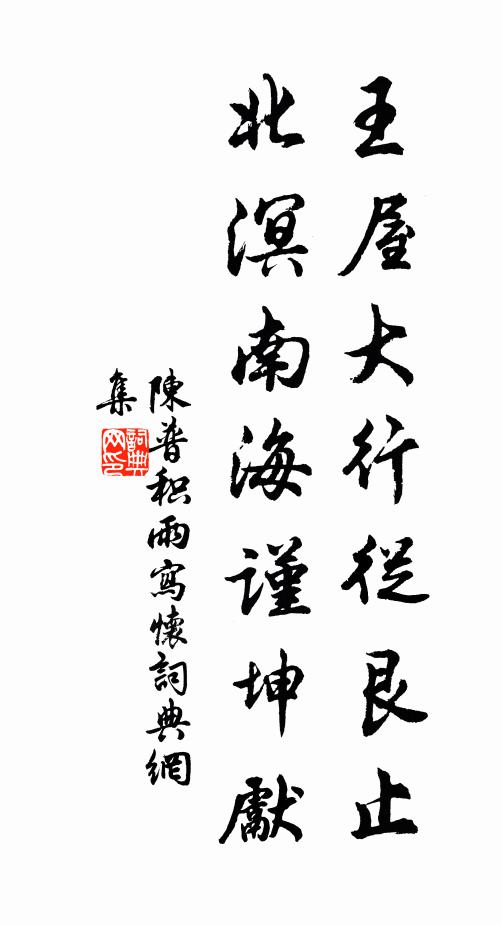 王屋大行從艮止
北溟南海謹坤獻
陳普积雨寫懷詞典網
集
詞典
网印